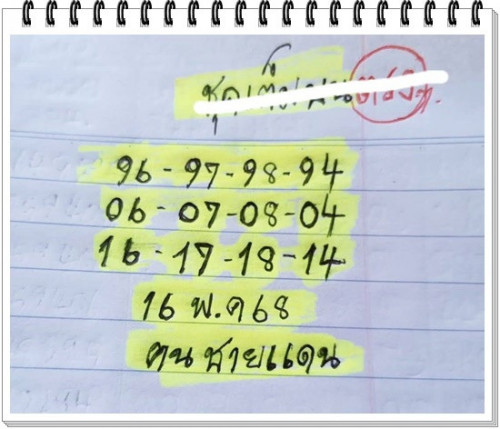 96-97-98-94
06-07-08-04
16-17-18-14
16 พ.ค 68
คนชายแดน